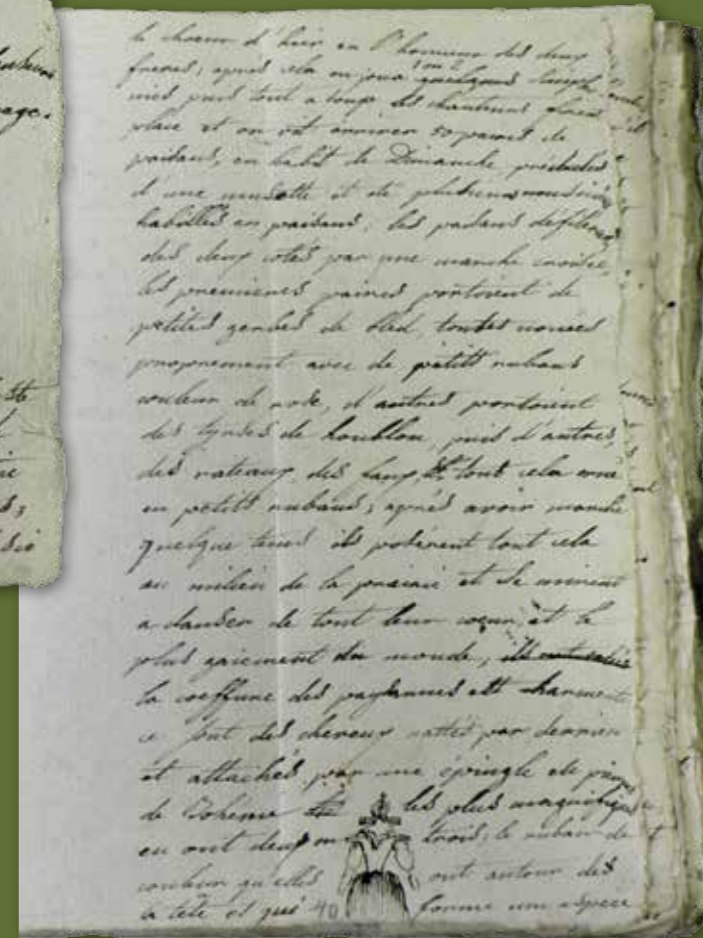 le choeur d'hier en l'honneur des deux
freres; après cela on joua 1 ou 2
puis tout a coup les chanteurs firent
place et on vit arriver 50 paires de
paisans, en habit de Dimanche précédés
d'une musette et de plusieurs
habillés en paisans; les paisans
des deux cotés par une marche croisée,
les premieres paires portoient de
petites gerbes de bled, toutes nouées
proprement avec de petits rubans
couleur de rose, d'autres portoient
des tyrses de houblon, puis d'autres,
des rateaux, des faux, tout cela orné
en petits rubans; après avoir marché
quelque tems ils posèrent tout cela
au milieu de la prairie et se mirent
a danser de tout leur coeur, et le
plus gaiement du monde,
la coeffure des paysannes est charmante
ce sont des cheveux nattés par derrier
et attachés par une épingle de
de Boheme les plus magnifiques
en ont deux trois; le ruban de
couleur qu'elles ont autour des
la tête et qui forme une espece
40
age.